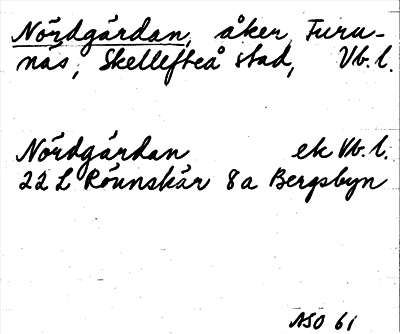 Nördgärdan, åker, Furu-
näs, Skellefteå stad, Vb. l.
Nördgärdan ek Vb. l.
22 L Röunskär 8a Bergsbyn
ASO 61